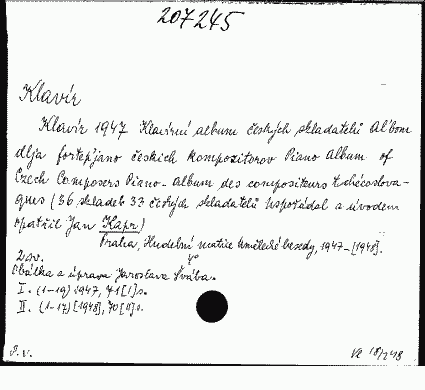 207245
Klavír
Klavír 1947 Klavírní album českých skladatelů Al'bom
dlja fortep'jano českich kompozitorov Piano Album of
Czech Composers Piano-Album des compositeurs tchécoslova-
ques (36 skladeb 33 českých skladatelů uspořádal a úvodem
opatřil Jan Kapr)
Praha, Hudební matice Umělecké besedy, 1947-[1948].
2 sv. 4°
Obálka a úprava Jaroslava Švába.
I. (1-19) 1947, 71 [1] s.
II. (1-17) [1948], 70 [1] s.
P. V.
Vč 18/248